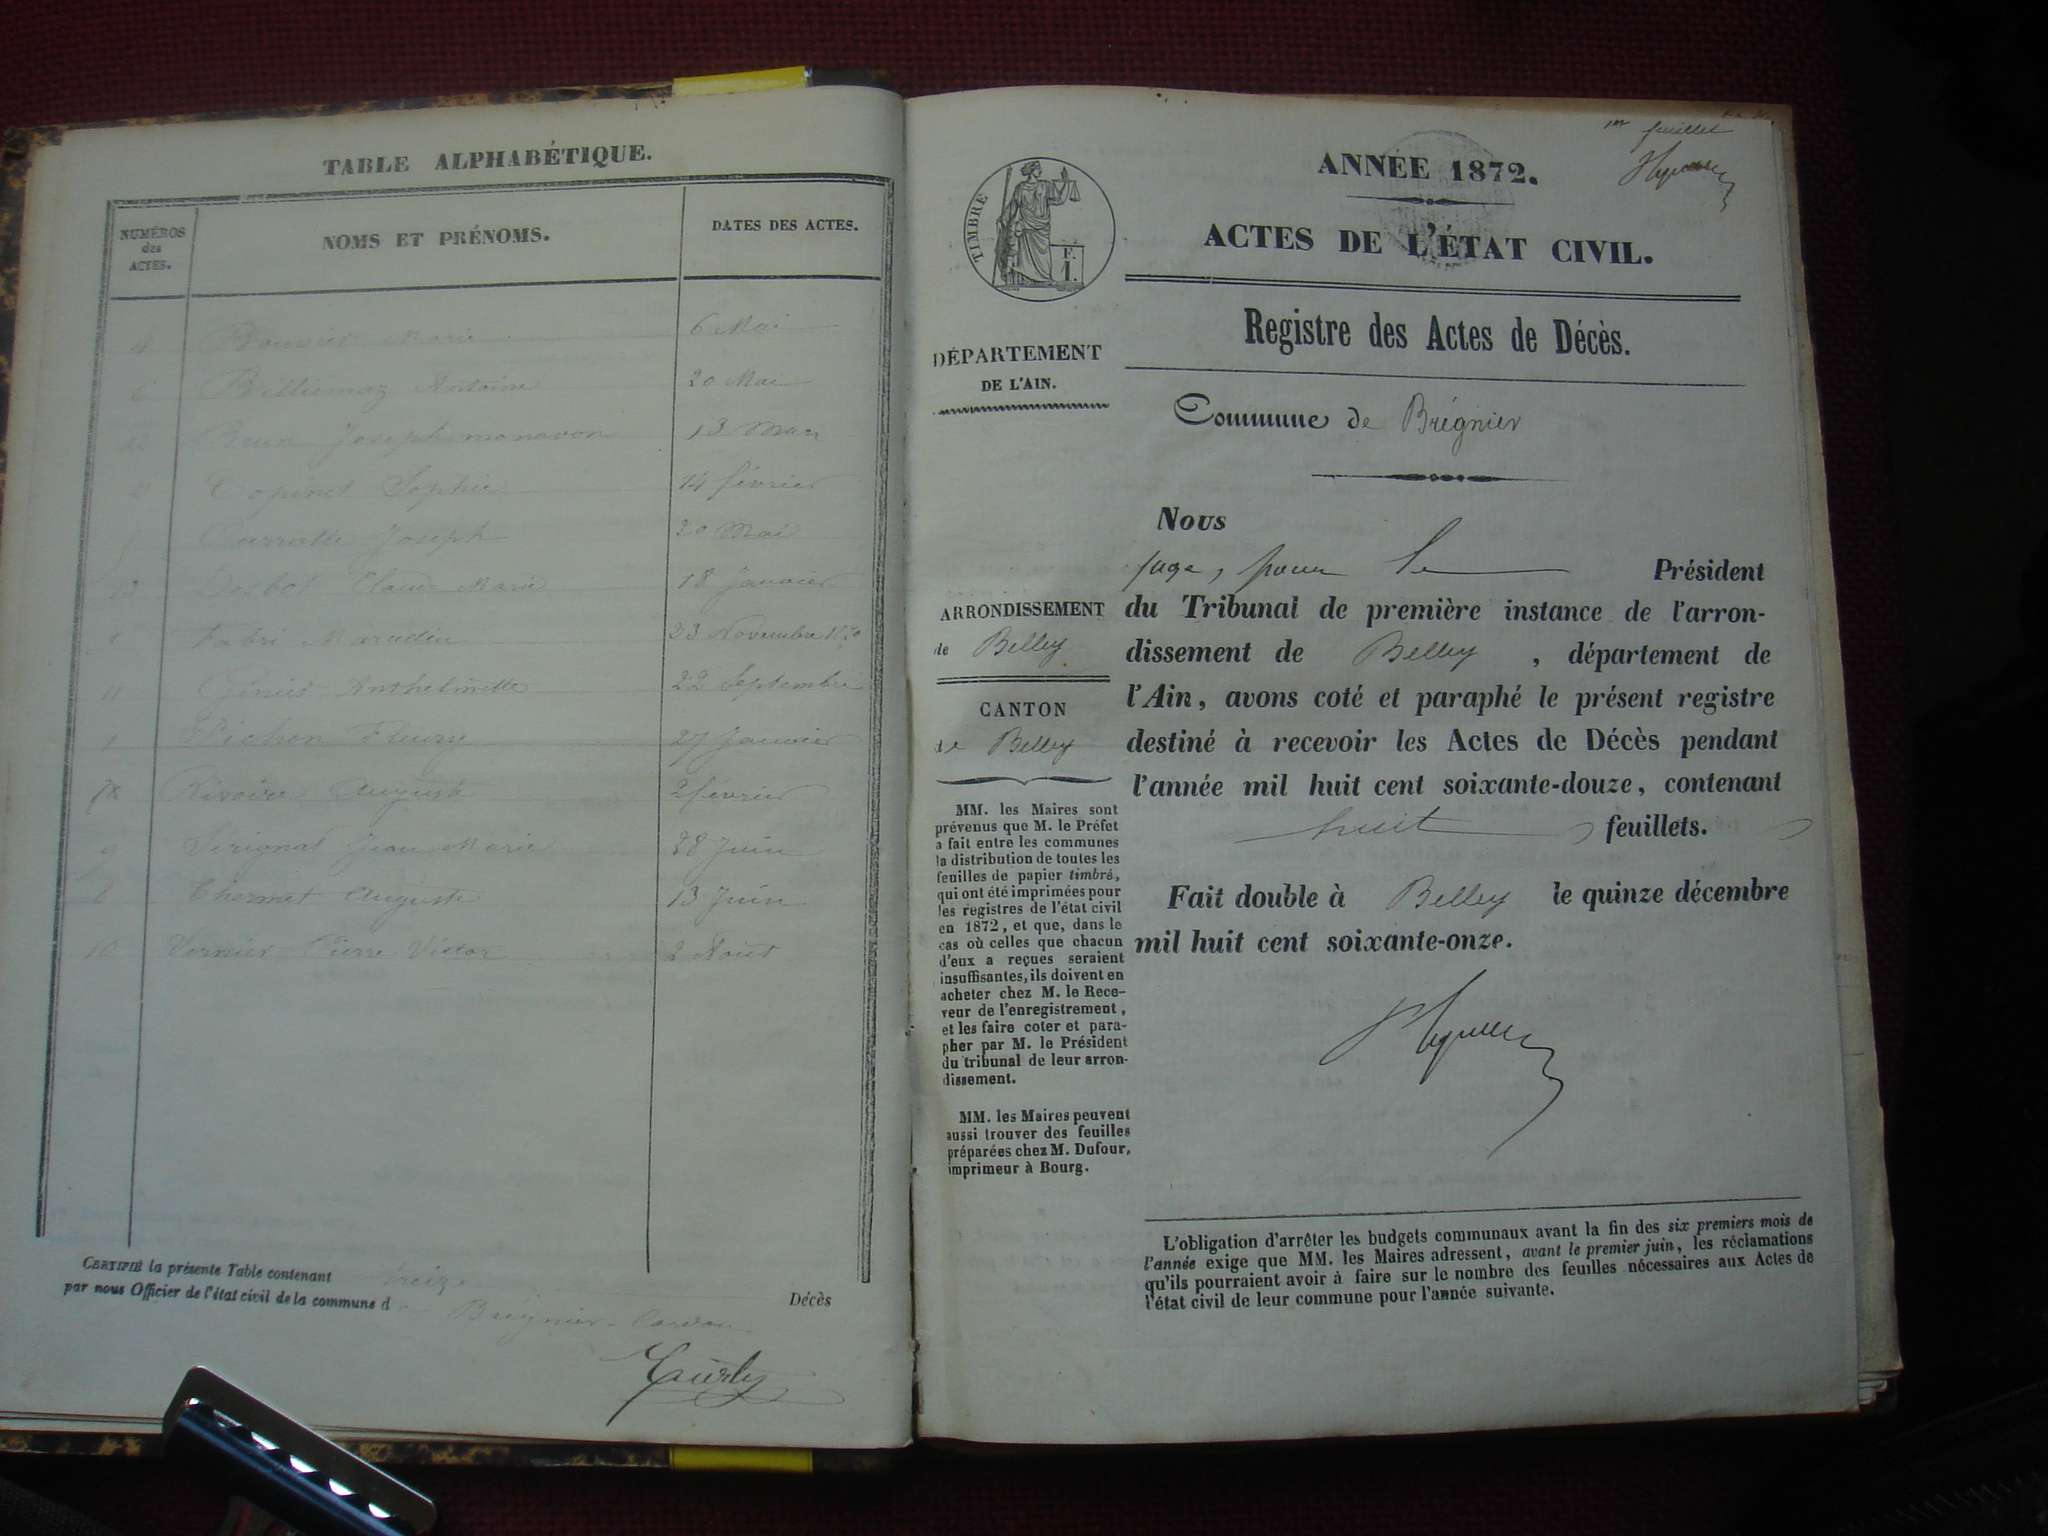 TABLE ALPHABÉTIQUE.
NUMÉROS des ACTES.
NOMS ET PRÉNOMS.
DATES DES ACTES.
4 Bouvier Marie 6 Mai
6 Billiemaz Antoine 20 Mai
12 Brun Joseph monavon 13 Mars
Copinet Sophie 14 février
Joseph 20 Mai
Claude Marie 18 Janvier
Fabri 23 Novembre 1870
11 Génies Anthelmette 22 Septembre
1 Pichon Fleury 27 Janvier
Rivoire Auguste 2 février
9 Sérignat Jean Marie 28 Juin
8 Thermet Auguste 13 Juin
10 Vernier Pierre Victor 2 Août
CERTIFIÉ la présente Table contenant treize Décès
par nous Officier de l'état civil de la commune d Brégnier-Cordon
1er feuillet
ANNÉE 1872.
ACTES DE L'ÉTAT CIVIL.
TIMBRE
Registre des Actes de Décès.
DÉPARTEMENT
DE L'AIN.
Commune de Brégnier
Nous
juge, pour le Président
du Tribunal de première instance de l'arron-
dissement de Belley, département de
l'Ain, avons coté et paraphé le présent registre
destiné à recevoir les Actes de Décès pendant
l'année mil huit cent soixante-douze, contenant
huit feuillets.
Fait double à Belley le quinze décembre
mil huit cent soixante-onze.
ARRONDISSEMENT
de Belley
CANTON
de Belley
MM. les Maires sont
prévenus que M. le Préfet
a fait entre les communes
la distribution de toutes les
feuilles de papier timbré,
qui ont été imprimées pour
les registres de l'état civil
en 1872, et que, dans le
cas où celles que chacun
d'eux a reçues seraient
insuffisantes, ils doivent en
acheter chez M. le Rece-
veur de l'enregistrement,
et les faire coter et para-
pher par M. le Président
du tribunal de leur arron-
dissement.
MM. les Maires peuvent
aussi trouver des feuilles
préparées chez M. Dufour,
imprimeur à Bourg.
L'obligation d'arrêter les budgets communaux avant la fin des six premiers mois de
l'année exige que MM. les Maires adressent, avant le premier juin, les réclamations
qu'ils pourraient avoir à faire sur le nombre des feuilles nécessaires aux Actes de
l'état civil de leur commune pour l'année suivante.